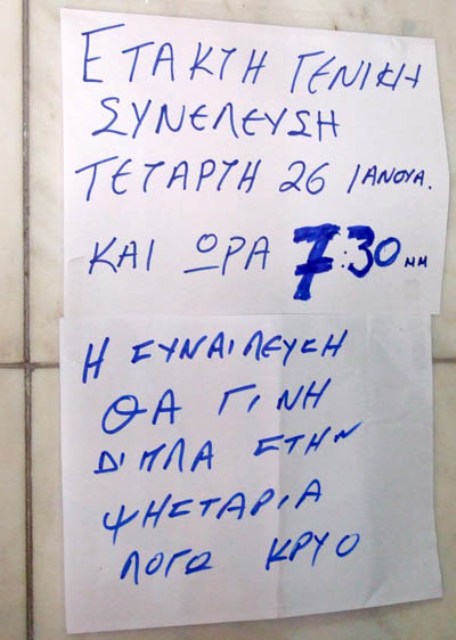 ΕΤΑΚΤΗ ΓΕΝΙΚΗ
ΣΥΝΕΛΕΥΣΗ
ΤΕΤΑΡΤΗ 26 ΙΑΝΟΥΑ.
ΚΑΙ ΩΡΑ 7:30 ΜΜ
Η ΣΥΝΑΙΛΕΥΣΗ
ΘΑ ΓΙΝΗ
ΔΙΠΛΑ ΣΤΗΝ
ΨΗΣΤΑΡΙΑ
ΛΟΓΩ ΚΡΥΟ